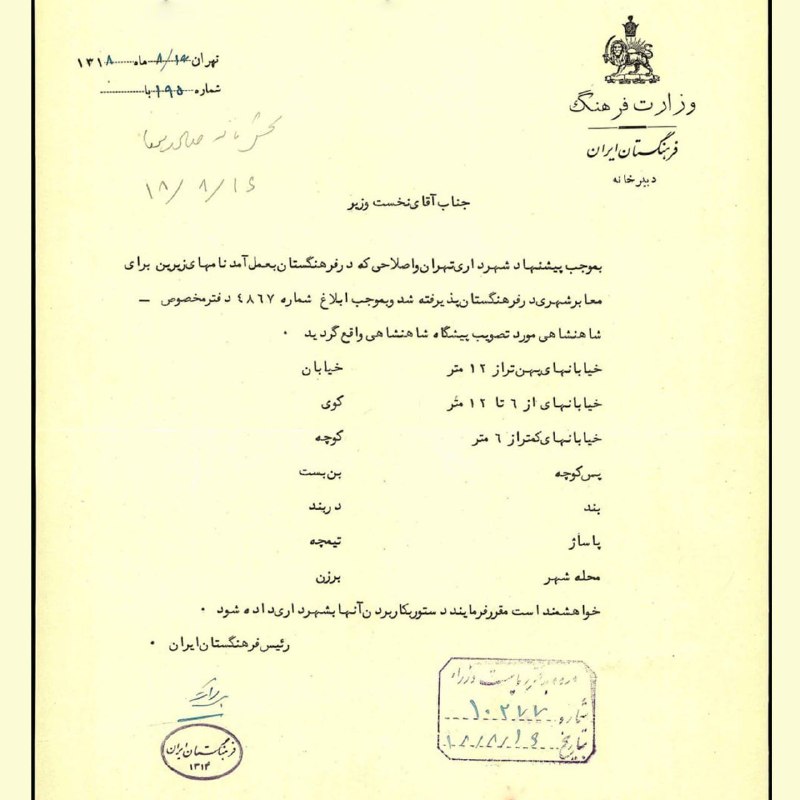 وزارت فرهنگ
فرهنگستان ایران
دبیرخانه
تهران ۸/۱۴ ماه ۱۳۱۸
شماره ۱۹۵ با
۱۸/۸/۱۶
جناب آقای نخست وزیر
بموجب پیشنهاد شهرداری تهران و اصلاحی که در فرهنگستان بعمل آمد نامهای زیرین برای
معابر شهری در فرهنگستان پذیرفته شد و بموجب ابلاغ شماره ٤٨٦٧ دفتر مخصوص –
شاهنشاهی مورد تصویب پیشگاه شاهنشاهی واقع گردید ۰
خیابانهای پهن تر از ۱۲ متر خیابان
خیابانهای از ٦ تا ۱۲ متر کوی
خیابانهای کمتر از ٦ متر کوچه
پس کوچه بن بست
بند دربند
پاساژ تیمچه
محله شهر برزن
خواهشمند است مقرر فرمایند دستور بکار بردن آنها بشهرداری داده شود ۰
رئیس فرهنگستان ایران ۰
فرهنگستان ایران
۱۳۱۴
ریاست وزراء
شماره ۱۰۲۷۷
بتاریخ ۱۸/۸/۱۶